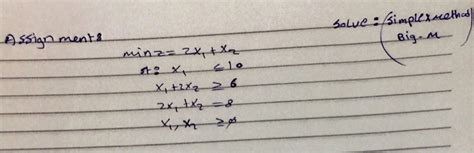 Assignment 8
Solve: (Simplex method
Big-M)
min z = 2x₁ + x₂
st: x₁ ≤ 10
x₁ + 2x₂ ≥ 6
2x₁ + x₂ = 8
x₁, x₂ ≥ 0